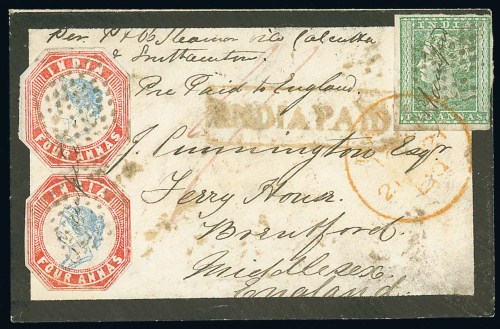 Per P & O Steamer via Calcutta
& Southampton
Pre Paid to England.
INDIA PAID
J. Cunnington Esqr
Ferry House
Brentford
Middlesex
England.
INDIA
FOUR ANNAS
INDIA
FOUR ANNAS
INDIA
TWO ANNAS